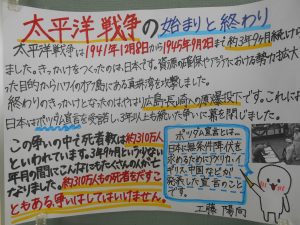 太平洋戦争の始まりと終わり
太平洋戦争は1941年12月8日から1945年9月2日まで約3年9ヶ月続けられ
ました。きっかけをつくったのは、日本です。資源の確保やアジアにおける勢力拡大
った目的からハワイのオアフ島にある真珠湾を攻撃しました。
終わりのきっかけとなったのはやはり広島・長崎への原爆投下です。これには
日本はポツダム宣言を受諾し、3年以上も続いた争いに幕を閉じました。
この争いの中で死者数は約310万人
といわれています。3年9ヶ月という少ない
年月の間にこんなにもたくさんの人が亡く
なりました。約310万人もの死者をだすこ
ともある争いはしてはいけません。
ポツダム宣言とは…
日本に無条件降伏
を求めるためにアメリカ・イ
ギリス・中国などが
発表した宣言のこと
です。
工藤 陽向